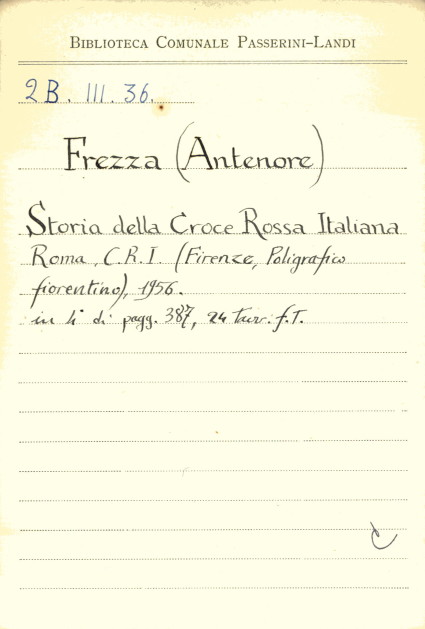 BIBLIOTECA COMUNALE PASSERINI-LANDI
2B. III. 36.
Frezza (Antenore)
Storia della Croce Rossa Italiana
Roma, C.R.I. (Firenze, Poligrafico
fiorentino), 1956.
in di pagg. 387, 24 tavv. f.T.